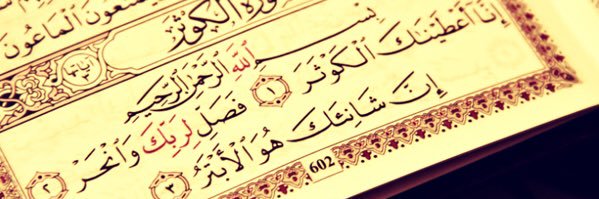 وَيَمْنَعُونَ ٱلْمَاعُونَ
سورة الكوثر
بِسْمِ ٱللَّهِ ٱلرَّحْمَٰنِ ٱلرَّحِيمِ
إِنَّا أَعْطَيْنَٰكَ ٱلْكَوْثَرَ ١ فَصَلِّ لِرَبِّكَ وَٱنْحَرْ ٢
إِنَّ شَانِئَكَ هُوَ ٱلْأَبْتَرُ ٣
602